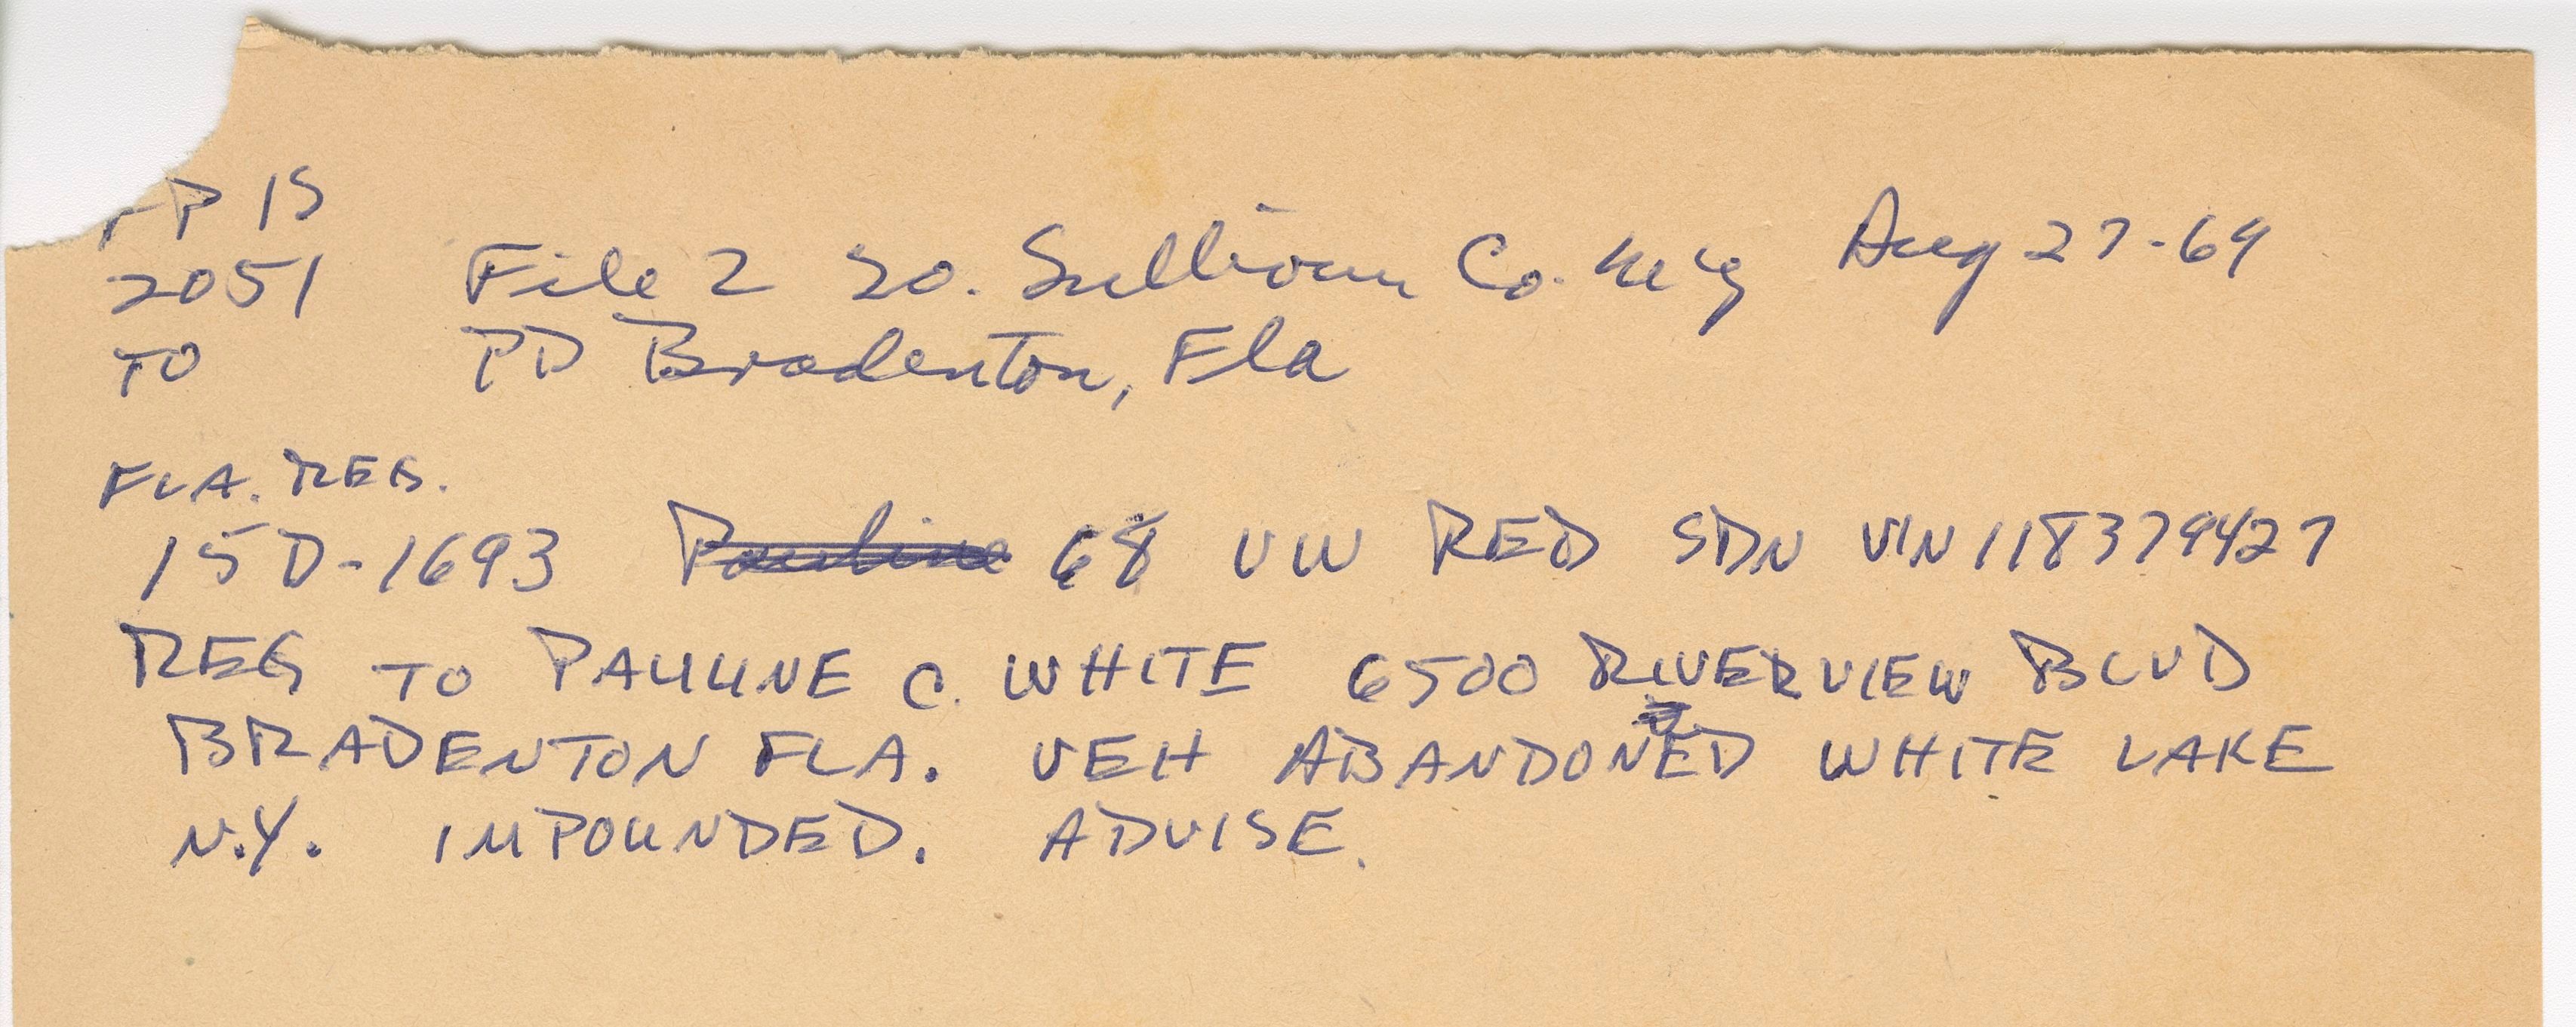 P 15
2051 File 2 SO. Sullivan Co. N.Y. Aug 27-69
TO PD Bradenton, Fla
FLA. REG.
15D-1693 Pauline 68 VW RED SDN VIN 118379427
REG TO PAULINE C. WHITE 6500 RIVERVIEW BLVD
BRADENTON FLA. VEH ABANDONED WHITE LAKE
N.Y. IMPOUNDED. ADVISE.